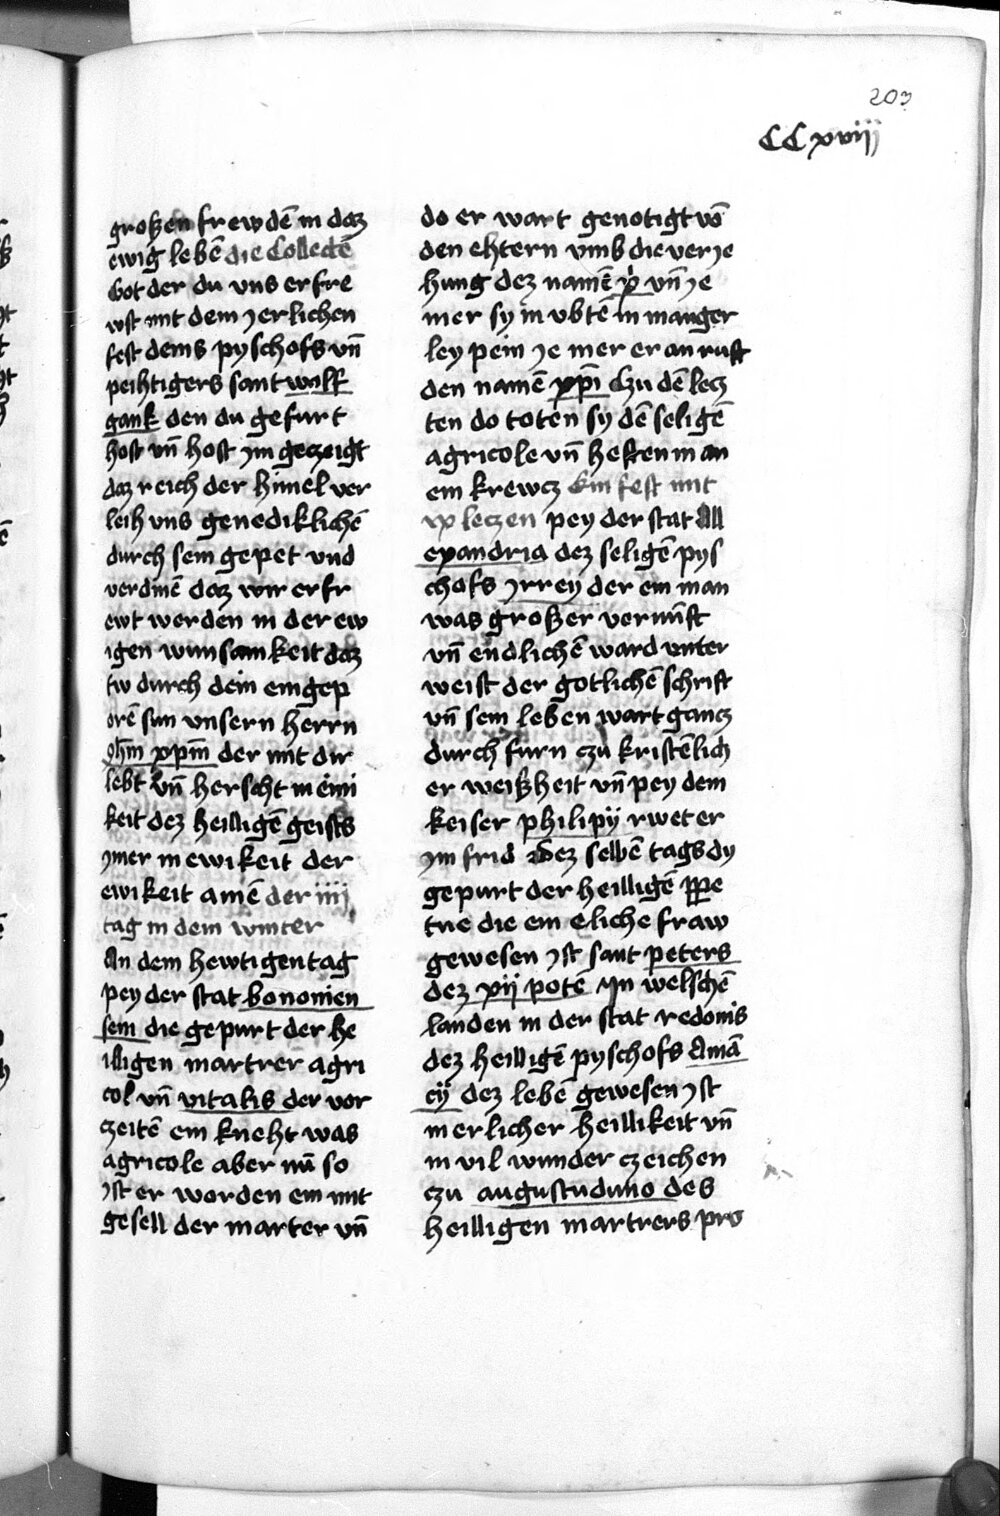 203
CCxviij
großen frewdē in daz
ewig lebē die Collectē
Got der du vns erfre
wst mit dem zerlichen
fest deins pyschofs vn̄
peihtigers sant wolf
gank den du gefurt
host vn̄ host ym geczeigt
daz reich der himel ver
leih vns genediklichē
durch sein gepet vnd
verdinē daz wir erfr
ewt werden in der ew
igen wunsamkeit daz
tw durch dein eingep
orē sun vnsern herrn
yhm̄ xpm̄ der mit dir
lebt vn̄ herscht in eini
keit dez heilligē geists
ymer in ewikeit der
ewikeit amē der iiij
tag in dem winter
An dem hewtigen tag
pey der stat bononien
sem die gepurt der he
illigen martrer agri
col vn̄ vitalis der vor
czeitē ein kneht was
agricole aber nū so
yst er worden ein mit
gesell der marter vn̄
do er wart genotigt vō
den ehtern vmb die verye
hung dez namē xp̄i vn̄ ye
mer sy in vbtē in manger
ley pein ye mer er an ruft
den namē xp̄i Czu dē lecz
ten do toten sy dē seligē
agricole vn̄ heften in an
ein krewcz Ein fest mit
ix leczen pey der stat All
exandria dez seligē pys
chofs yrrey der ein man
was großer vernūft
vn̄ endlichē ward vnter
weist der gotlichē schrift
vn̄ sein leben wart gancz
durch furn czu kristēlich
er weißheit vn̄ pey dem
keiser philipij rwet er
ym frid Dez selbē tags dy
gepurt der heilligē ꝑpe
tue die ein eliche fraw
gewesen yst sant peters
dez xij potē Jn welschē
landen in der stat redonis
dez heilligē pyschofs Amā
cij dez lebē gewesen yst
in erlicher heillikeit vn̄
in vil wunder czeichen
czu augustuduno des
heilligen martrers pro